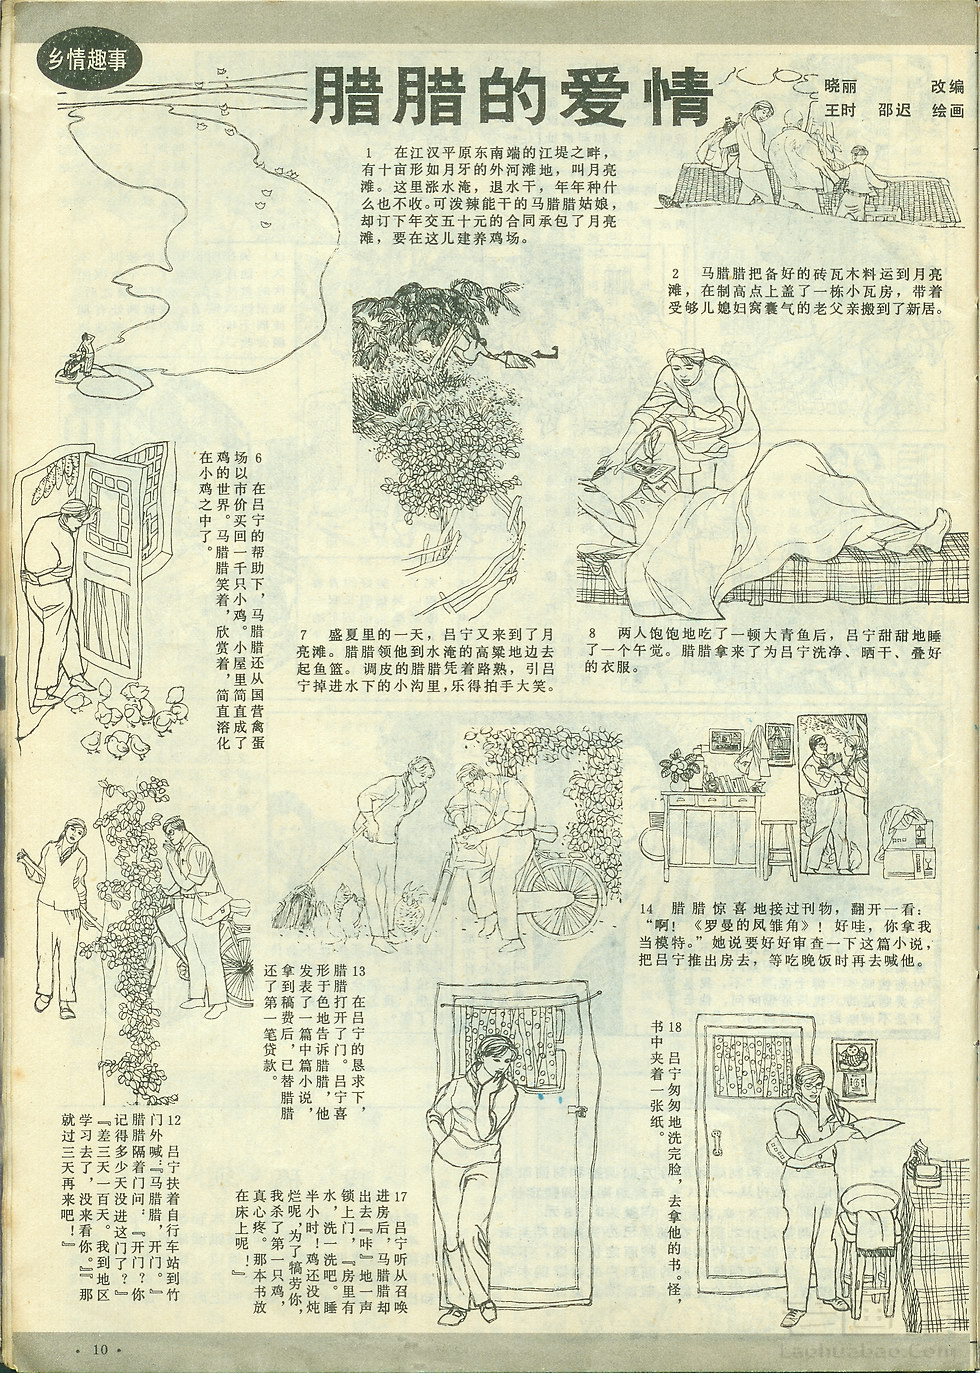 乡情趣事
腊腊的爱情
晓丽 改编
王时 邵迟 绘画
1 在江汉平原东南端的江堤之畔，
有十亩形如月牙的外河滩地，叫月亮
滩。这里涨水淹，退水干，年年种什
么也不收。可泼辣能干的马腊腊姑娘，
却订下年交五十元的合同承包了月亮
滩，要在这儿建养鸡场。
2 马腊腊把备好的砖瓦木料运到月亮
滩，在制高点上盖了一栋小瓦房，带着
受够儿媳妇窝囊气的老父亲搬到了新居。
6 在吕宁的帮助下，马腊腊还从国营禽蛋
场以市价买回一千只小鸡。小屋里简直成了
鸡的世界。马腊腊笑着，欣赏着，简直溶化
在小鸡之中了。
7 盛夏里的一天，吕宁又来到了月
亮滩。腊腊领他到水淹的高粱地边去
起鱼篮。调皮的腊腊凭着路熟，引吕
宁掉进水下的小沟里，乐得拍手大笑。
8 两人饱饱地吃了一顿大青鱼后，吕宁甜甜地睡
了一个午觉。腊腊拿来了为吕宁洗净、晒干、叠好
的衣服。
12 吕宁扶着自行车站到竹
门外喊：『马腊腊，开门。』
腊腊隔着门问：『开门？你
记得多少天没进这门了？』
『差三天一百天。我到地区
学习去了，没来看你。』『那
就过三天再来吧！』
13 在吕宁的恳求下，
腊腊打开了门。吕宁喜
形于色地告诉腊腊，他
发表了一篇中篇小说，
拿到稿费后，已替腊腊
还了第一笔贷款。
14 腊腊惊喜地接过刊物，翻开一看：
“啊！《罗曼的凤雏角》！好哇，你拿我
当模特。”她说要好好审查一下这篇小说，
把吕宁推出房去，等吃晚饭时再去喊他。
17 吕宁听从召唤
进房后，马腊腊却
出去『咔』地一声
锁上门，『房里有
水，洗一洗吧。睡
半小时！鸡还没炖
烂呢，为了犒劳你，
我杀了第一只鸡，
真心疼。那本书放
在床上呢！』
18 吕宁匆匆地洗完脸，去拿他的书。怪，
书中夹着一张纸。
·10·
Laphuabao.Com